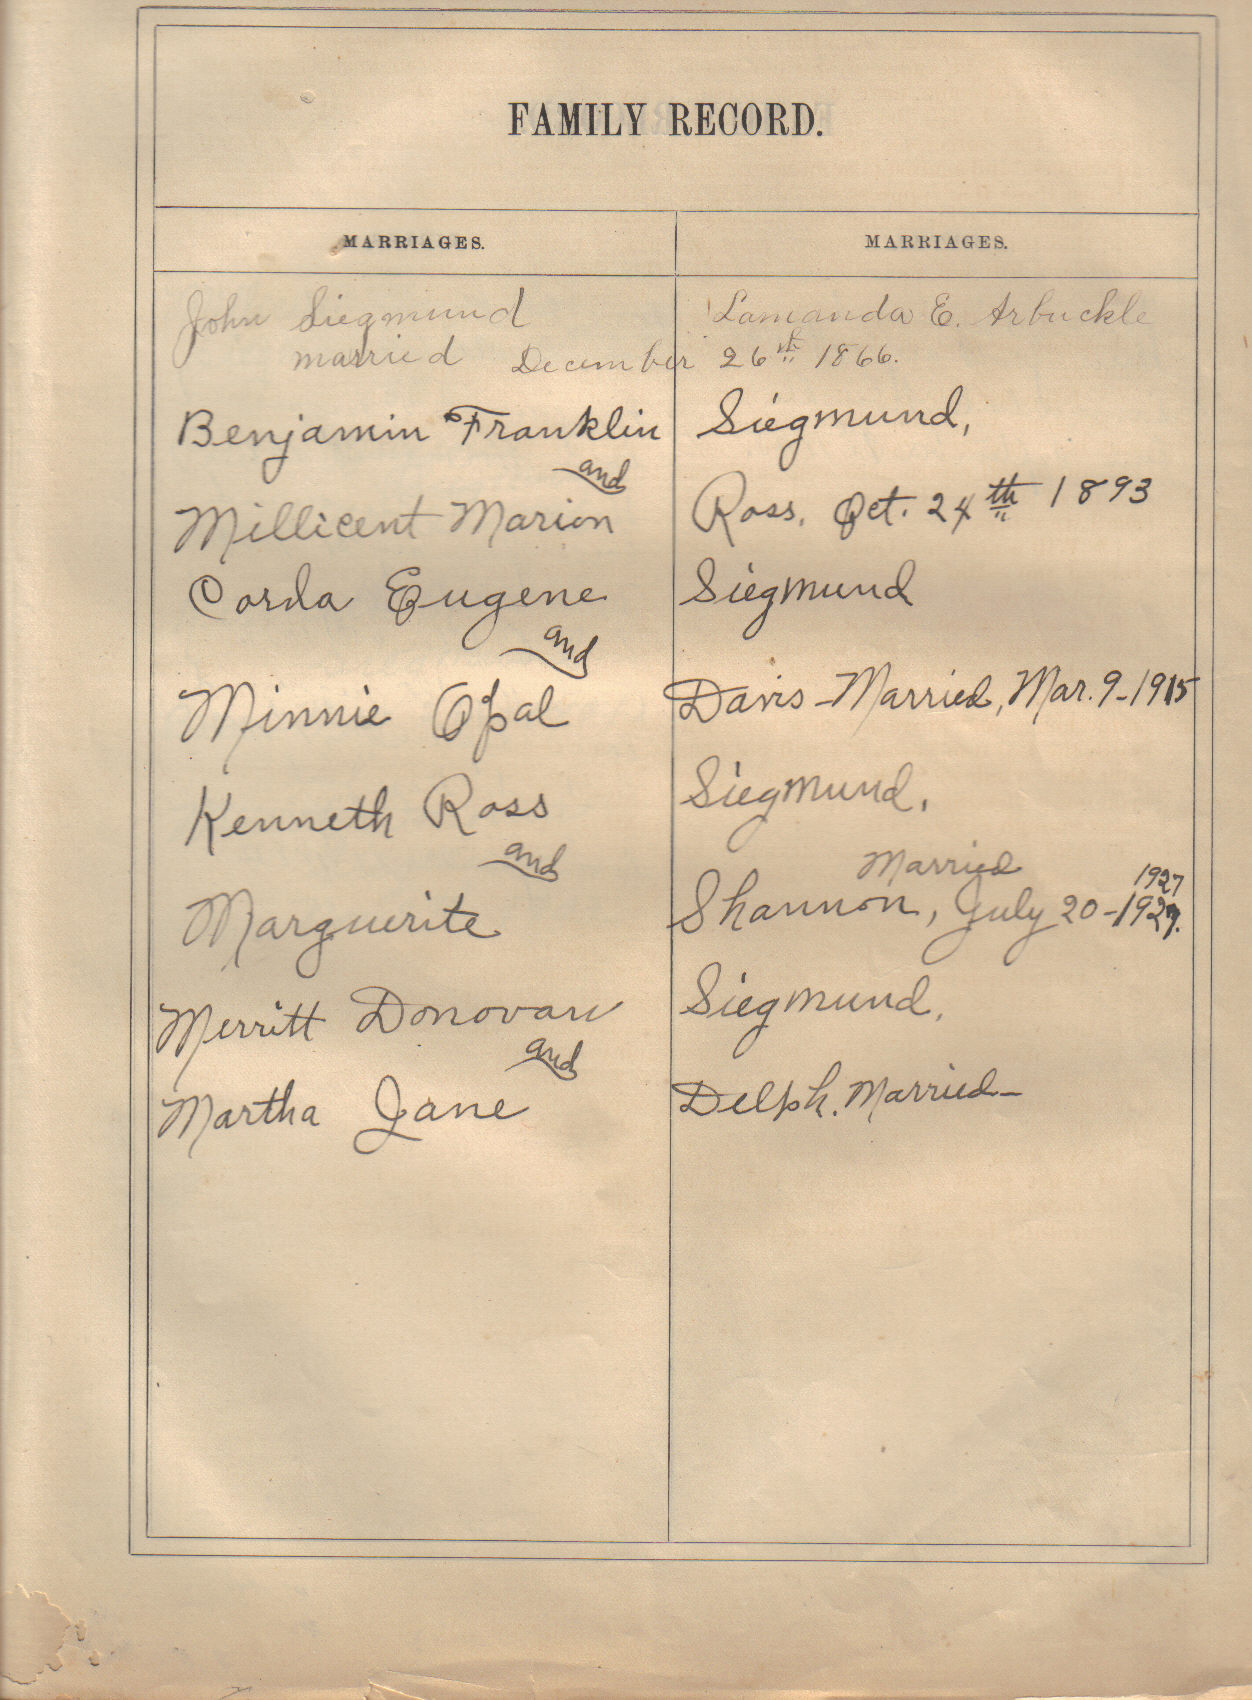 FAMILY RECORD.
MARRIAGES. MARRIAGES.
John Siegmund Lamanda E. Arbuckle
married December 26th 1866.
Benjamin Franklin Siegmund,
and
Millicent Marion Ross, Oct. 24th 1893
Corda Eugene Siegmund
and
Minnie Opal Davis - Married, Mar. 9-1915
Kenneth Ross Siegmund,
and
Married 1927
Marguerite Shannon, July 20-1927.
Merritt Donovan Siegmund,
and
Martha Jane Delph. Married-